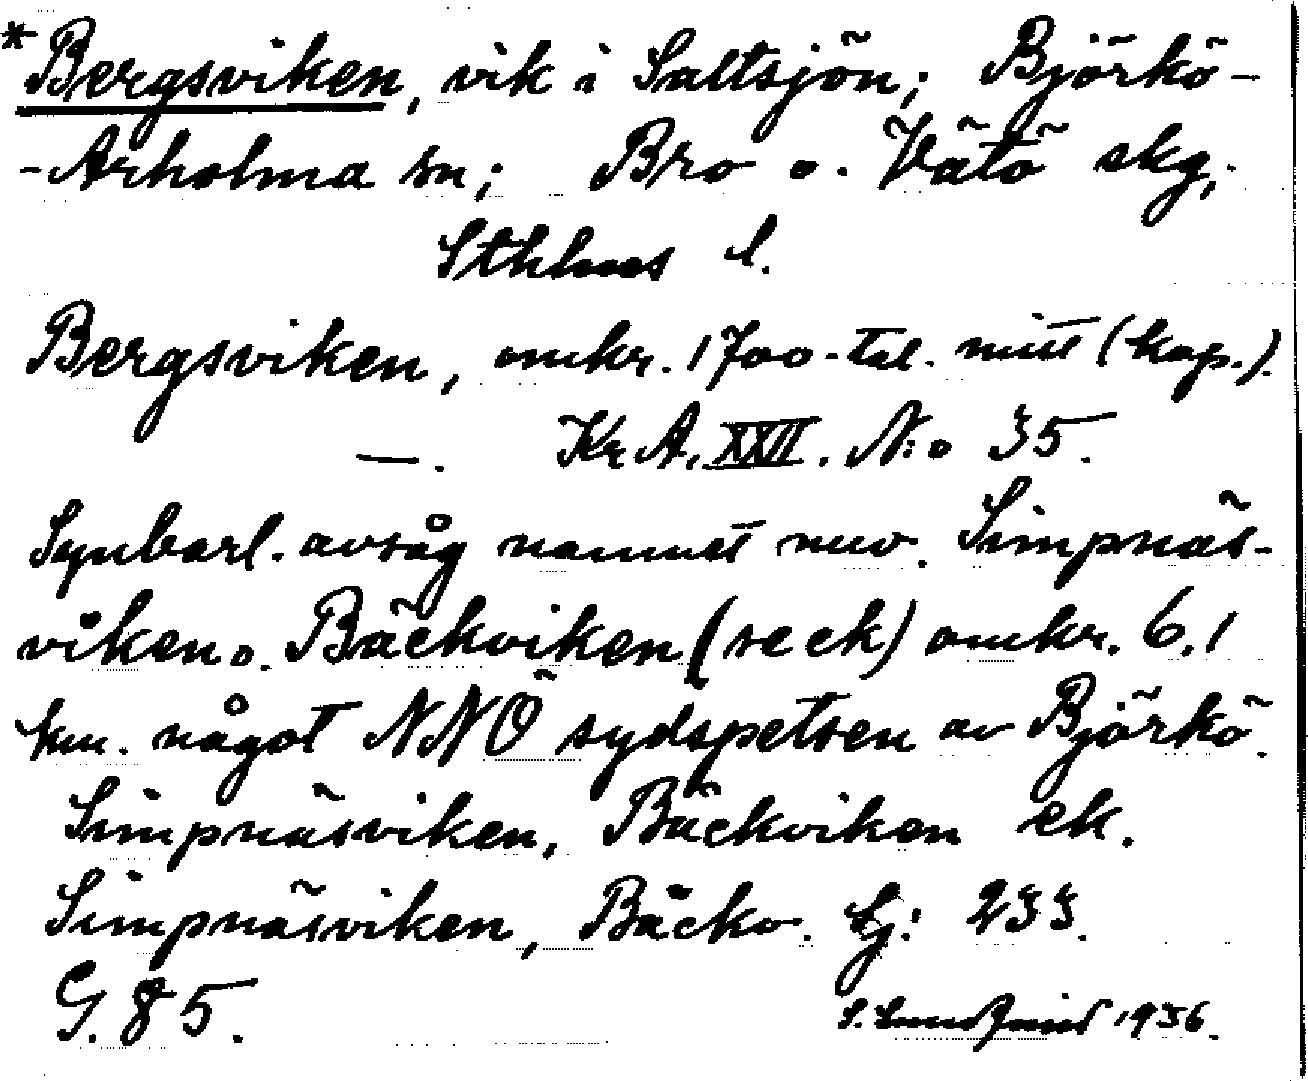 *Bergsviken, vik i Saltsjön; Björkö-
-Arholma sn; Bro o. Vätö skg,
Sthlms l.
Bergsviken, omkr. 1700-tal. mitt (kop.).
—. KrA. XXII. N:o 35.
Synbarl. avsåg namnet nuv. Simpnäs-
viken o. Bäckviken (se ek) omkr. 6.1
km. något NNÖ sydspetsen av Björkö.
Simpnäsviken, Bäckviken ek.
Simpnäsviken, Bäckv. Lj: 233.
G. 85. 1936.